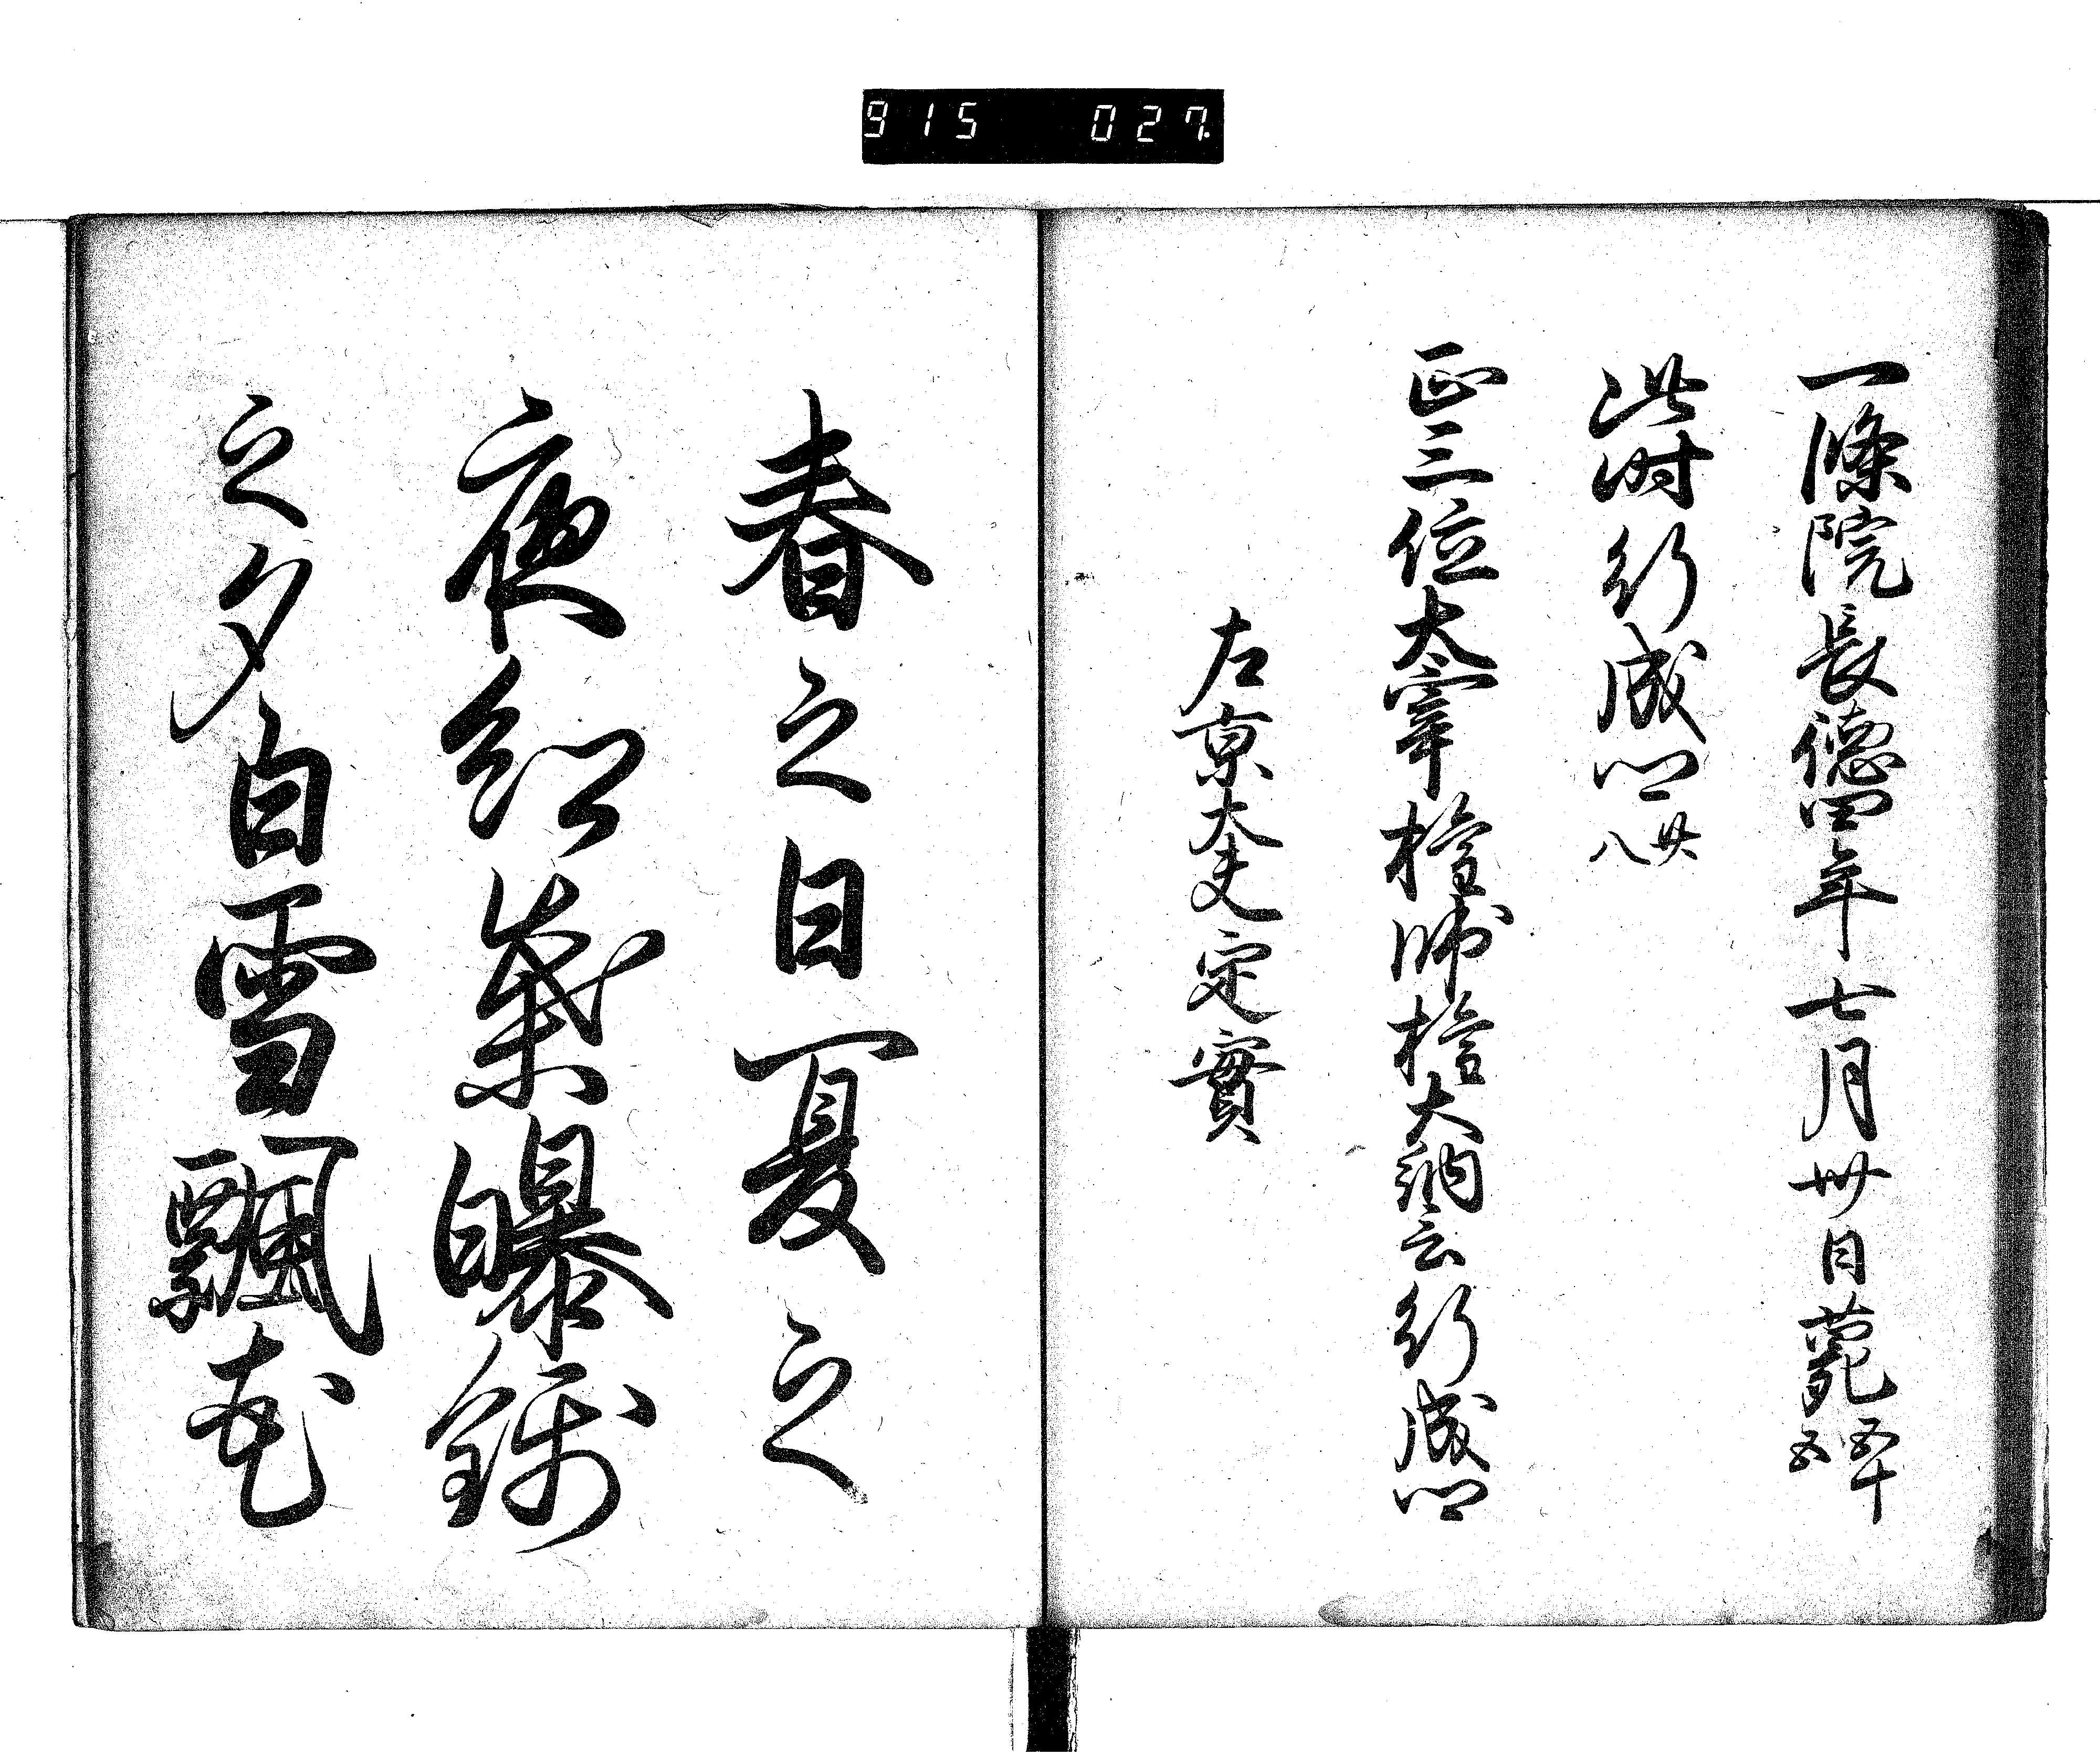 915 027
一條院長徳四年七月卅日薨 年五十五
此時行成卿 廿八
正三位大宰権帥権大納言行成卿
左京大夫定實
春之日夏之
夜紅葉曝錦
之夕白雪飄花